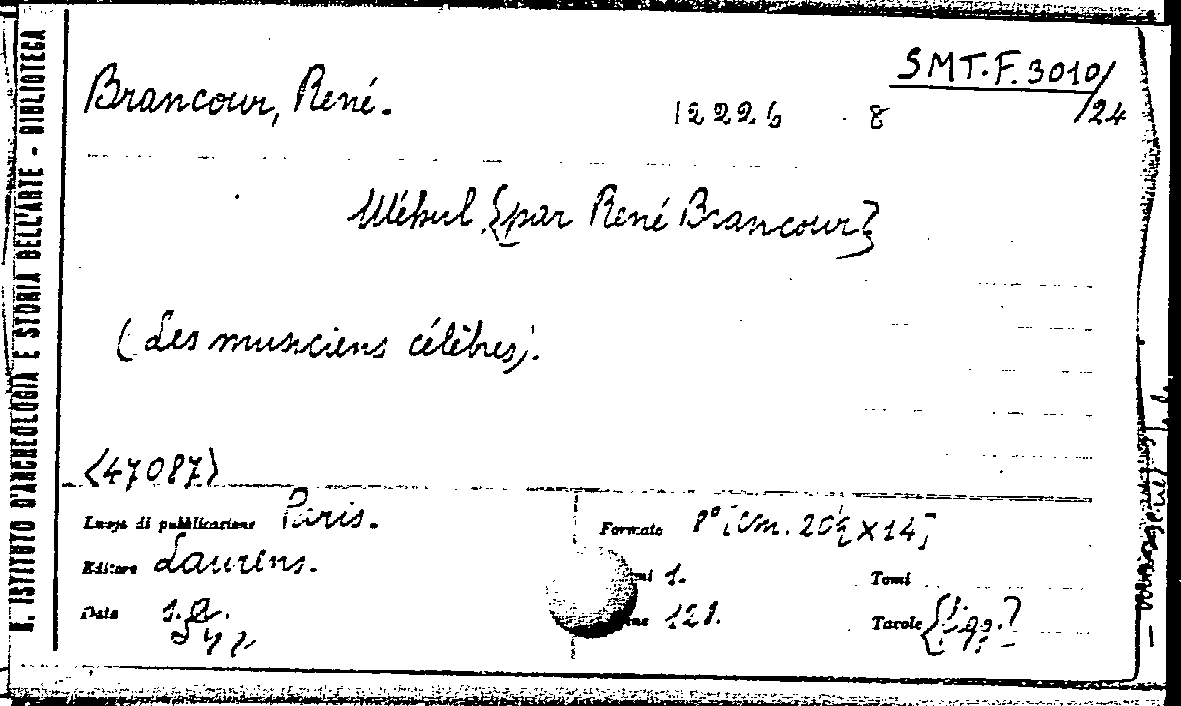 R. ISTITUTO D'ARCHEOLOGIA E STORIA DELL'ARTE - BIBLIOTECA
SMT.F.3010/24
Brancour, René.
12226 8
Méhul {par René Brancour}
(Les musiciens célèbres).
<47087>
Luogo di pubblicazione Paris.
Formato 8° [cm. 20½ x 14]
Editore Laurens.
1.
Tomi
Data s.a.
121.
Tavole {figg.}